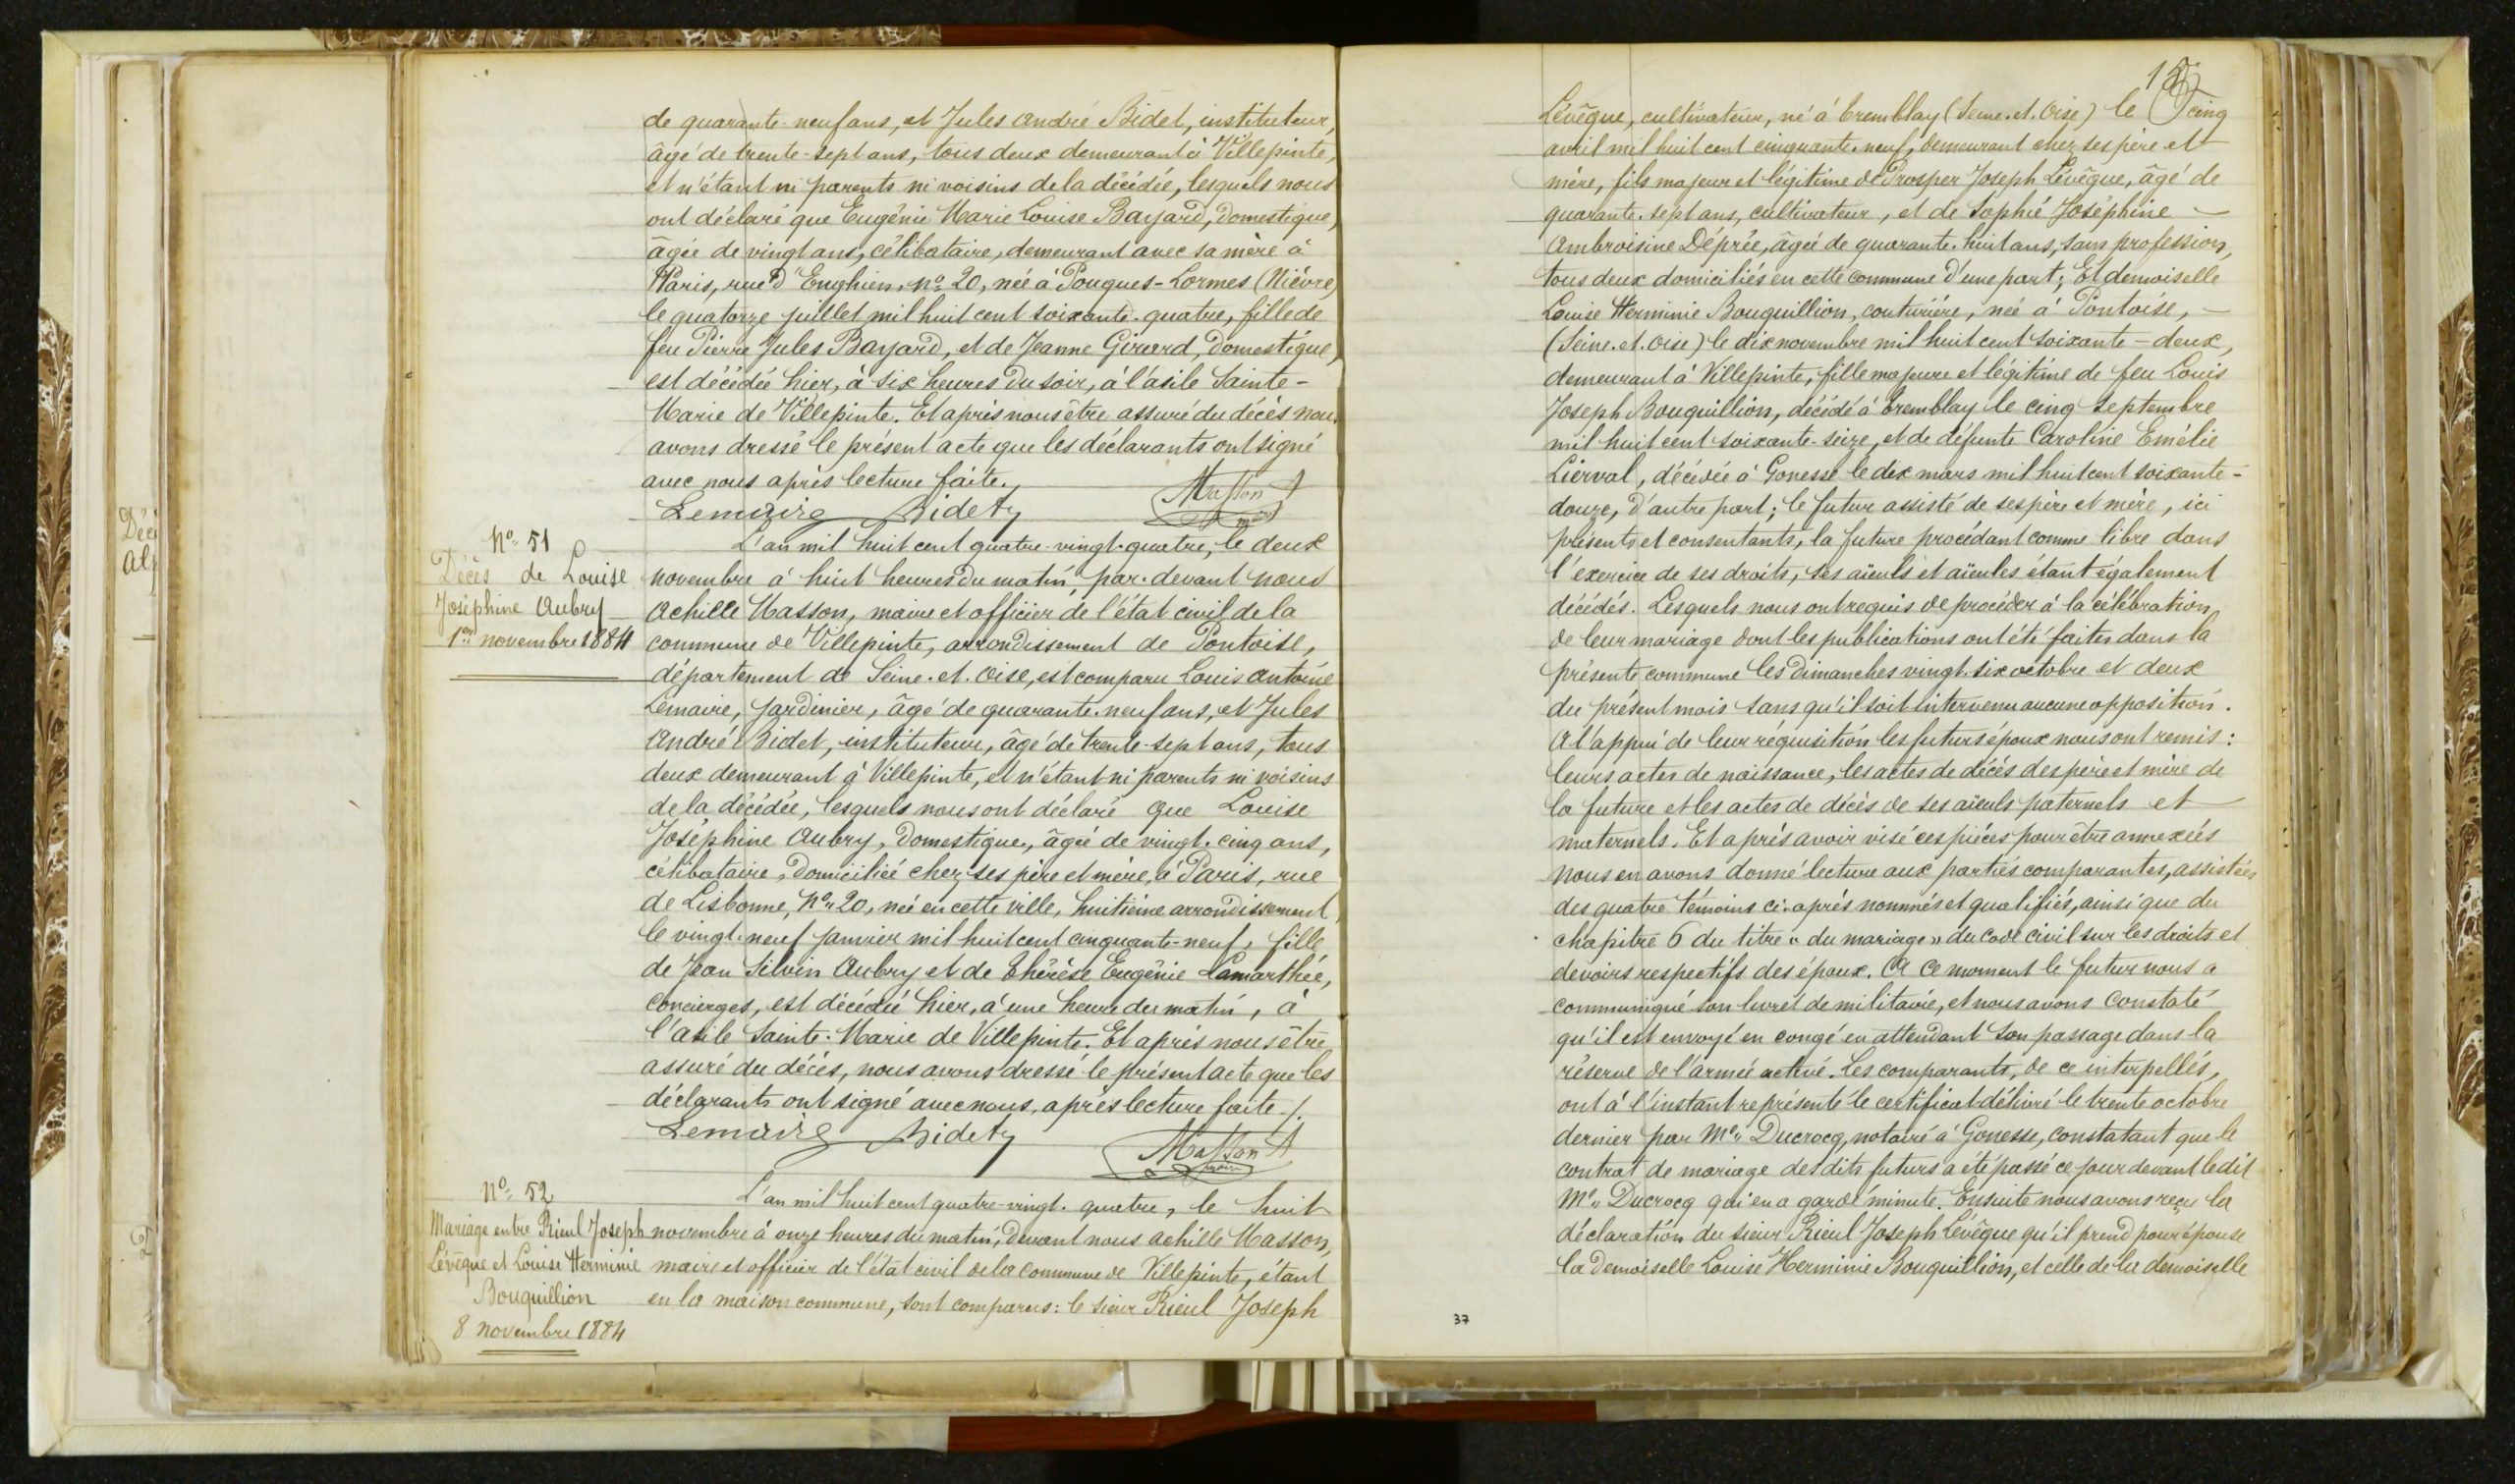 de quarante-neuf ans, et Jules André Bidet, instituteur,
âgé de trente-sept ans, tous deux demeurant à Villepinte,
et n'étant ni parents ni voisins de la décédée, lesquels nous
ont déclaré que Eugénie Marie Louise Bayard, domestique,
âgée de vingt ans, célibataire, demeurant avec sa mère à
Paris, rue d'Enghien, n° 20, née à Pougues-Lormes (Nièvre)
le quatorze juillet mil huit cent soixante-quatre, fille de
feu Pierre Jules Bayard, et de Jeanne Girard, domestique,
est décédée hier, à six heures du soir, à l'asile Sainte-
Marie de Villepinte. Et après nous être assuré du décès nous
avons dressé le présent acte que les déclarants ont signé
avec nous après lecture faite.
Lemaire Bidet Masson
maire
N° 51
Décès de Louise
Joséphine Aubry
1er novembre 1884
L'an mil huit cent quatre-vingt-quatre, le deux
novembre à huit heures du matin, par-devant nous
Achille Masson, maire et officier de l'état civil de la
commune de Villepinte, arrondissement de Pontoise,
département de Seine-et-Oise, est comparu Louis Antoine
Lemaire, jardinier, âgé de quarante-neuf ans, et Jules
André Bidet, instituteur, âgé de trente-sept ans, tous
deux demeurant à Villepinte, et n'étant ni parents ni voisins
de la décédée, lesquels nous ont déclaré que Louise
Joséphine Aubry, domestique, âgée de vingt-cinq ans,
célibataire, domiciliée chez ses père et mère, à Paris, rue
de Lisbonne, N° 20, née en cette ville, huitième arrondissement,
le vingt-neuf janvier mil huit cent cinquante-neuf, fille
de Jean Silvin Aubry et de Thérèse Eugénie Lamarthée,
concierges, est décédée hier, à une heure du matin, à
l'asile Sainte-Marie de Villepinte. Et après nous être
assuré du décès, nous avons dressé le présent acte que les
déclarants ont signé avec nous, après lecture faite ./.
Lemaire Bidet Masson
maire
N° 52
Mariage entre Rieul Joseph
Lévêque et Louise Herminie
Bouquillion
8 novembre 1884
L'an mil huit cent quatre-vingt-quatre, le huit
novembre à onze heures du matin, devant nous Achille Masson,
maire et officier de l'état civil de la commune de Villepinte, étant
en la maison commune, sont comparus: le sieur Rieul Joseph
Lévêque, cultivateur, né à Tremblay (Seine-et-Oise) le cinq
avril mil huit cent cinquante-neuf, demeurant chez ses père et
mère, fils majeur et légitime de Prosper Joseph Lévêque, âgé de
quarante-sept ans, cultivateur, et de Sophie Joséphine
Ambroisine Déprée, âgée de quarante-huit ans, sans profession,
tous deux domiciliés en cette commune d'une part; Et demoiselle
Louise Herminie Bouquillion, couturière, née à Pontoise,
(Seine-et-Oise) le dix novembre mil huit cent soixante-deux,
demeurant à Villepinte, fille majeure et légitime de feu Louis
Joseph Bouquillion, décédé à Tremblay le cinq septembre
mil huit cent soixante-seize, et de défunte Caroline Emélie
Lierval, décédée à Gonesse le dix mars mil huit cent soixante-
douze, d'autre part; le futur assisté de ses père et mère, ici
présents et consentants, la future procédant comme libre dans
l'exercice de ses droits, ses aïeuls et aïeules étant également
décédés. Lesquels nous ont requis de procéder à la célébration
de leur mariage dont les publications ont été faites dans la
présente commune les dimanches vingt-six octobre et deux
du présent mois sans qu'il soit intervenu aucune opposition.
A l'appui de leur réquisition les futurs époux nous ont remis:
leurs actes de naissance, les actes de décès des père et mère de
la future et les actes de décès de ses aïeuls paternels et
maternels. Et après avoir visé ces pièces pour être annexées
nous en avons donné lecture aux parties comparantes, assistées
des quatre témoins ci-après nommés et qualifiés, ainsi que du
chapitre 6 du titre « du mariage » du code civil sur les droits et
devoirs respectifs des époux. A ce moment le futur nous a
communiqué son livret de militaire, et nous avons constaté
qu'il est envoyé en congé en attendant son passage dans la
réserve de l'armée active. Les comparants, de ce interpellés,
ont à l'instant représenté le certificat délivré le trente octobre
dernier par Me Ducrocq, notaire à Gonesse, constatant que le
contrat de mariage desdits futurs a été passé ce jour devant ledit
Me Ducrocq qui en a gardé minute. Ensuite nous avons reçu la
déclaration du sieur Rieul Joseph Lévêque qu'il prend pour épouse
la demoiselle Louise Herminie Bouquillion, et celle de la demoiselle
37